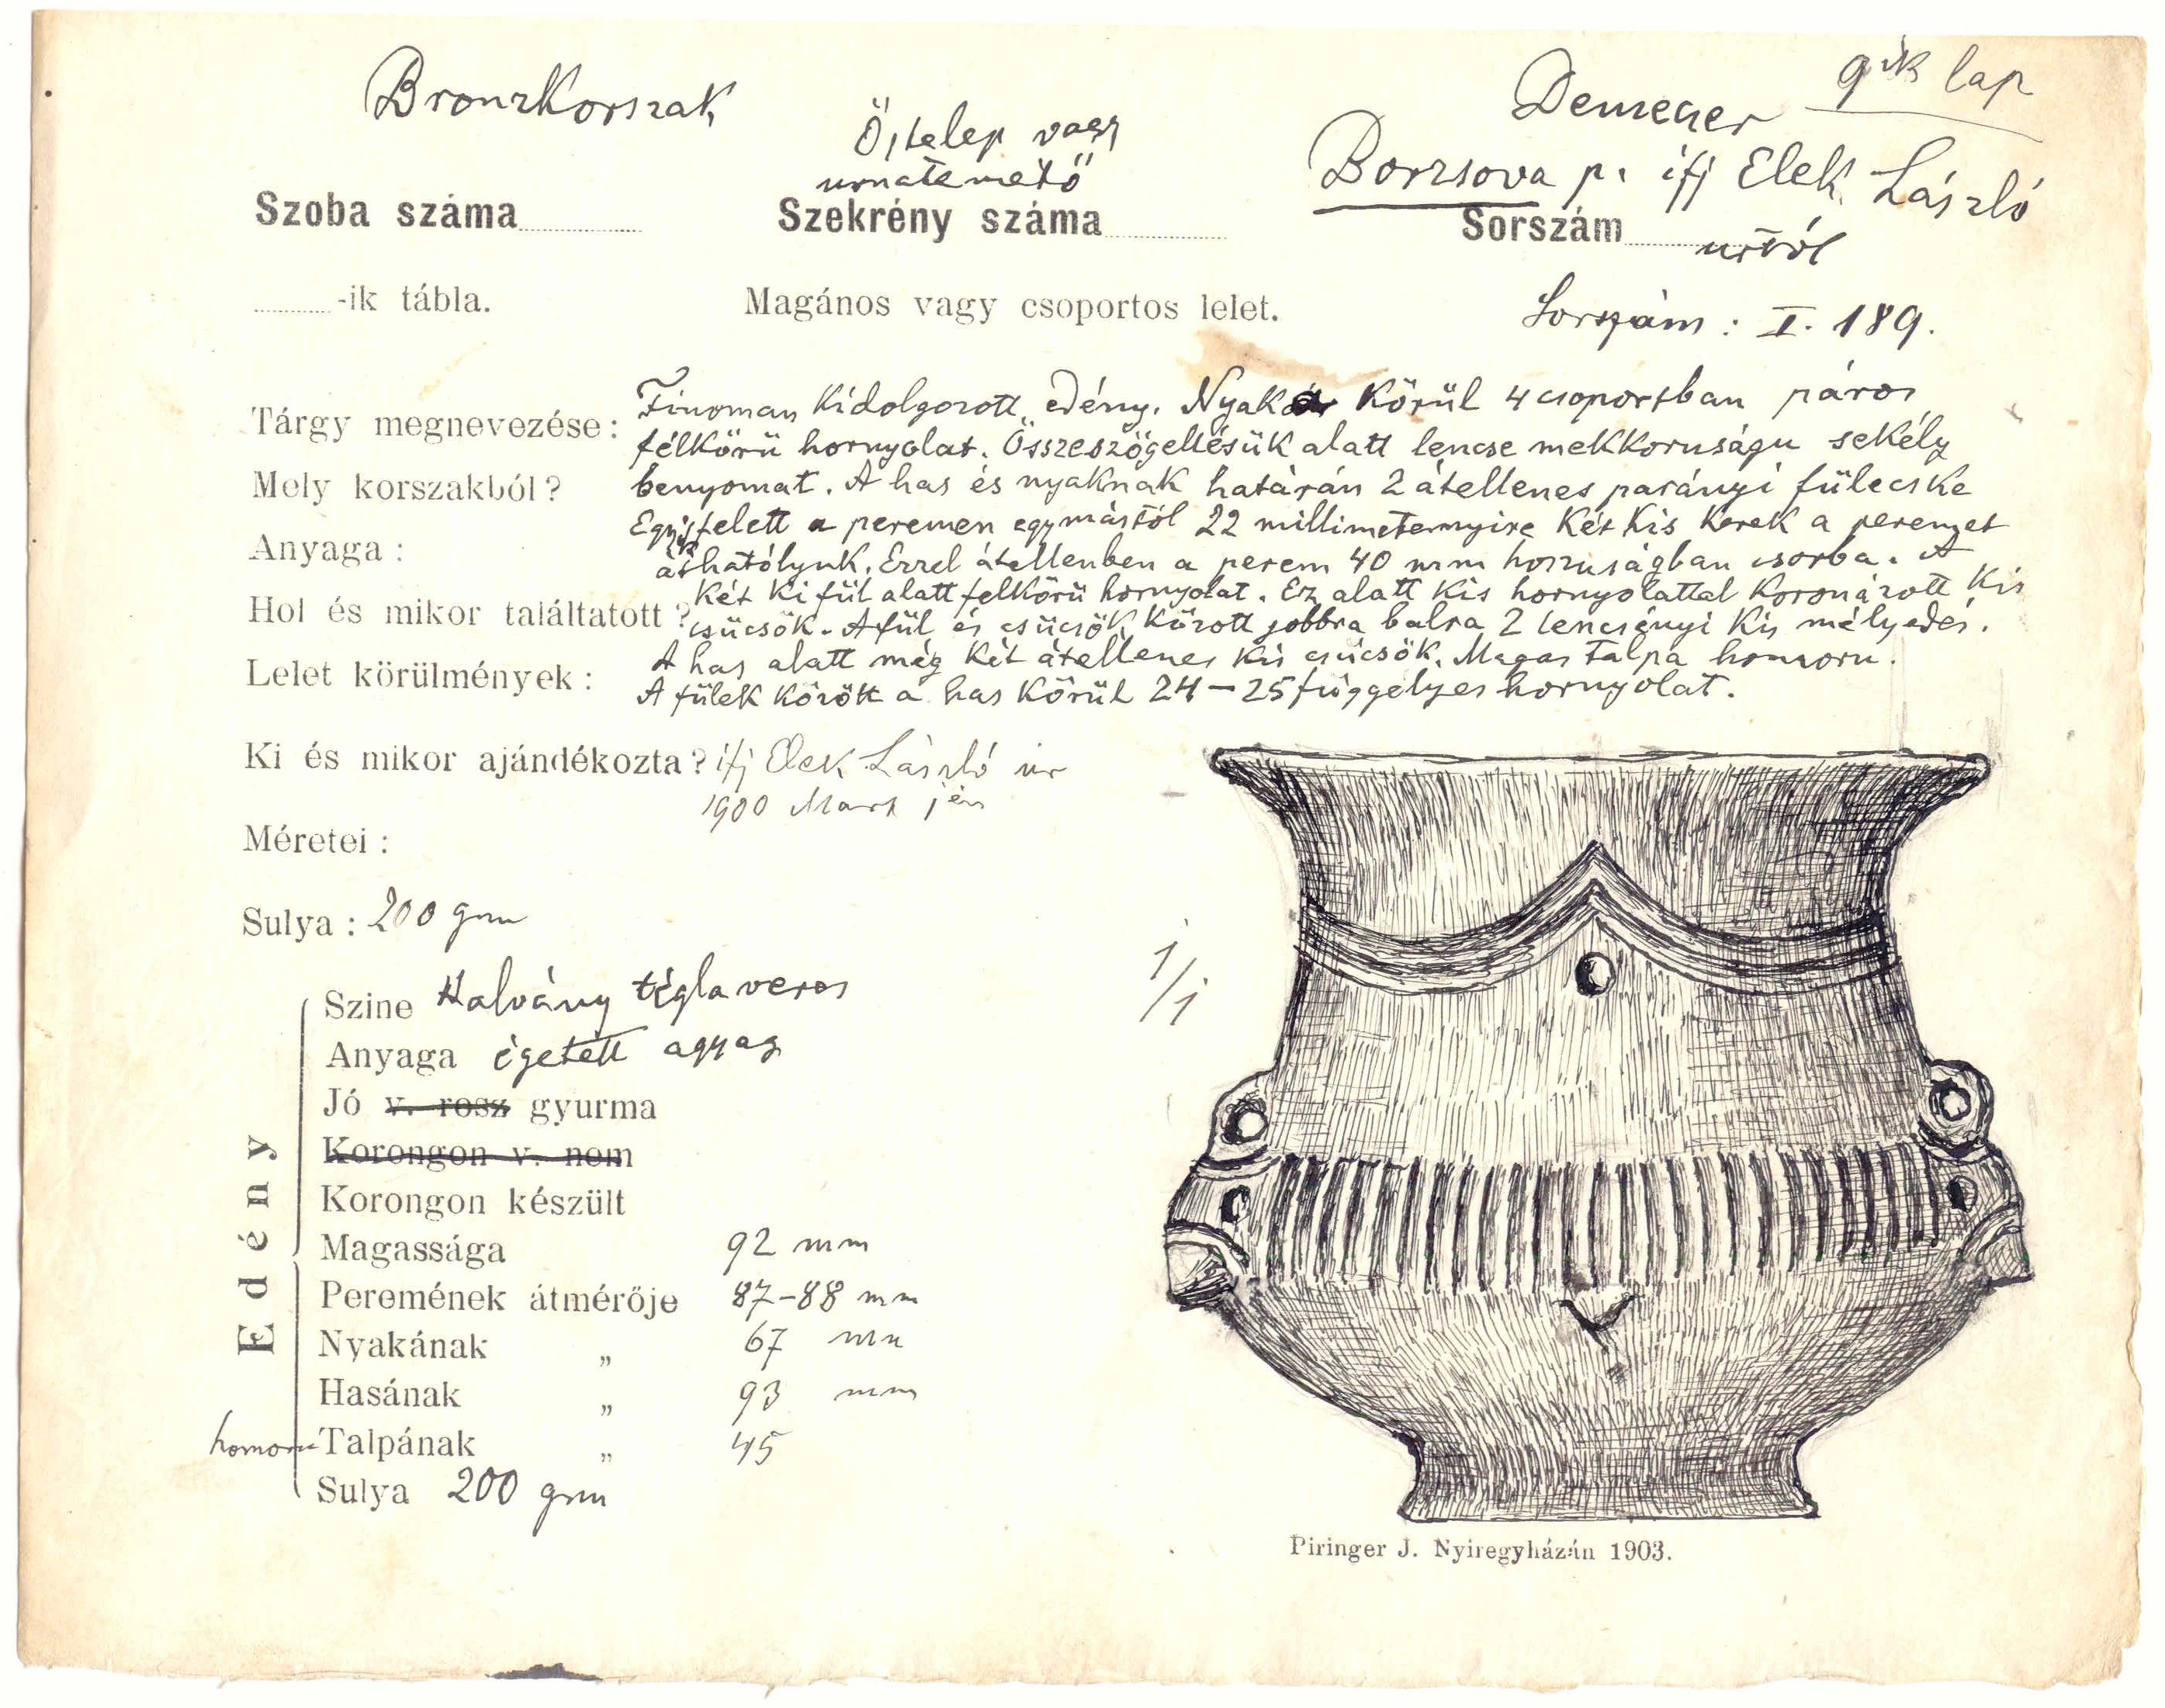 Bronzkorszak
Őstelep vagy
urnatemető
Demecser 9ik lap
Borzsova p. ifj Elek László
úrtól
Szoba száma
Szekrény száma
Sorszám
-ik tábla.
Magános vagy csoportos lelet.
Sorszám : I. 189.
Tárgy megnevezése :
Finoman kidolgozott edény. Nyaka körül 4 csoportban páros
félkörü hornyolat. Összeszögellésük alatt lencse mekkoruságu sekély
Mely korszakból?
benyomat. A has és nyaknak határán 2 átellenes parányi fülecske
Egyik felett a peremen egymástól 22 millimeternyire két kis kerek a peremet
Anyaga :
áthatólyuk. Ezzel átellenben a perem 40 mm hosszuságban csorba. A
Hol és mikor találtatott ?
két kifül alatt felkörü hornyolat. Ez alatt kis hornyolattal koronázott kis
csücsök. A fül és csücsök között jobbra balra 2 lencsényi kis mélyedés.
Lelet körülmények :
A has alatt még két átellenes kis csücsök. Magas talpa homoru.
A fülek között a has körül 24–25 függélyes hornyolat.
Ki és mikor ajándékozta ? ifj Elek László úr
1900 Mart jén
Méretei :
Sulya : 200 grm
1/1
Edény
Szine Halvány téglaveres
Anyaga égetett agyag
Jó v. rosz gyurma
Korongon v. nem
Korongon készült
Magassága 92 mm
Peremének átmérője 87–88 mm
Nyakának „ 67 mm
Hasának „ 93 mm
homoru Talpának „ 45
Sulya 200 grm
Piringer J. Nyiregyházán 1903.